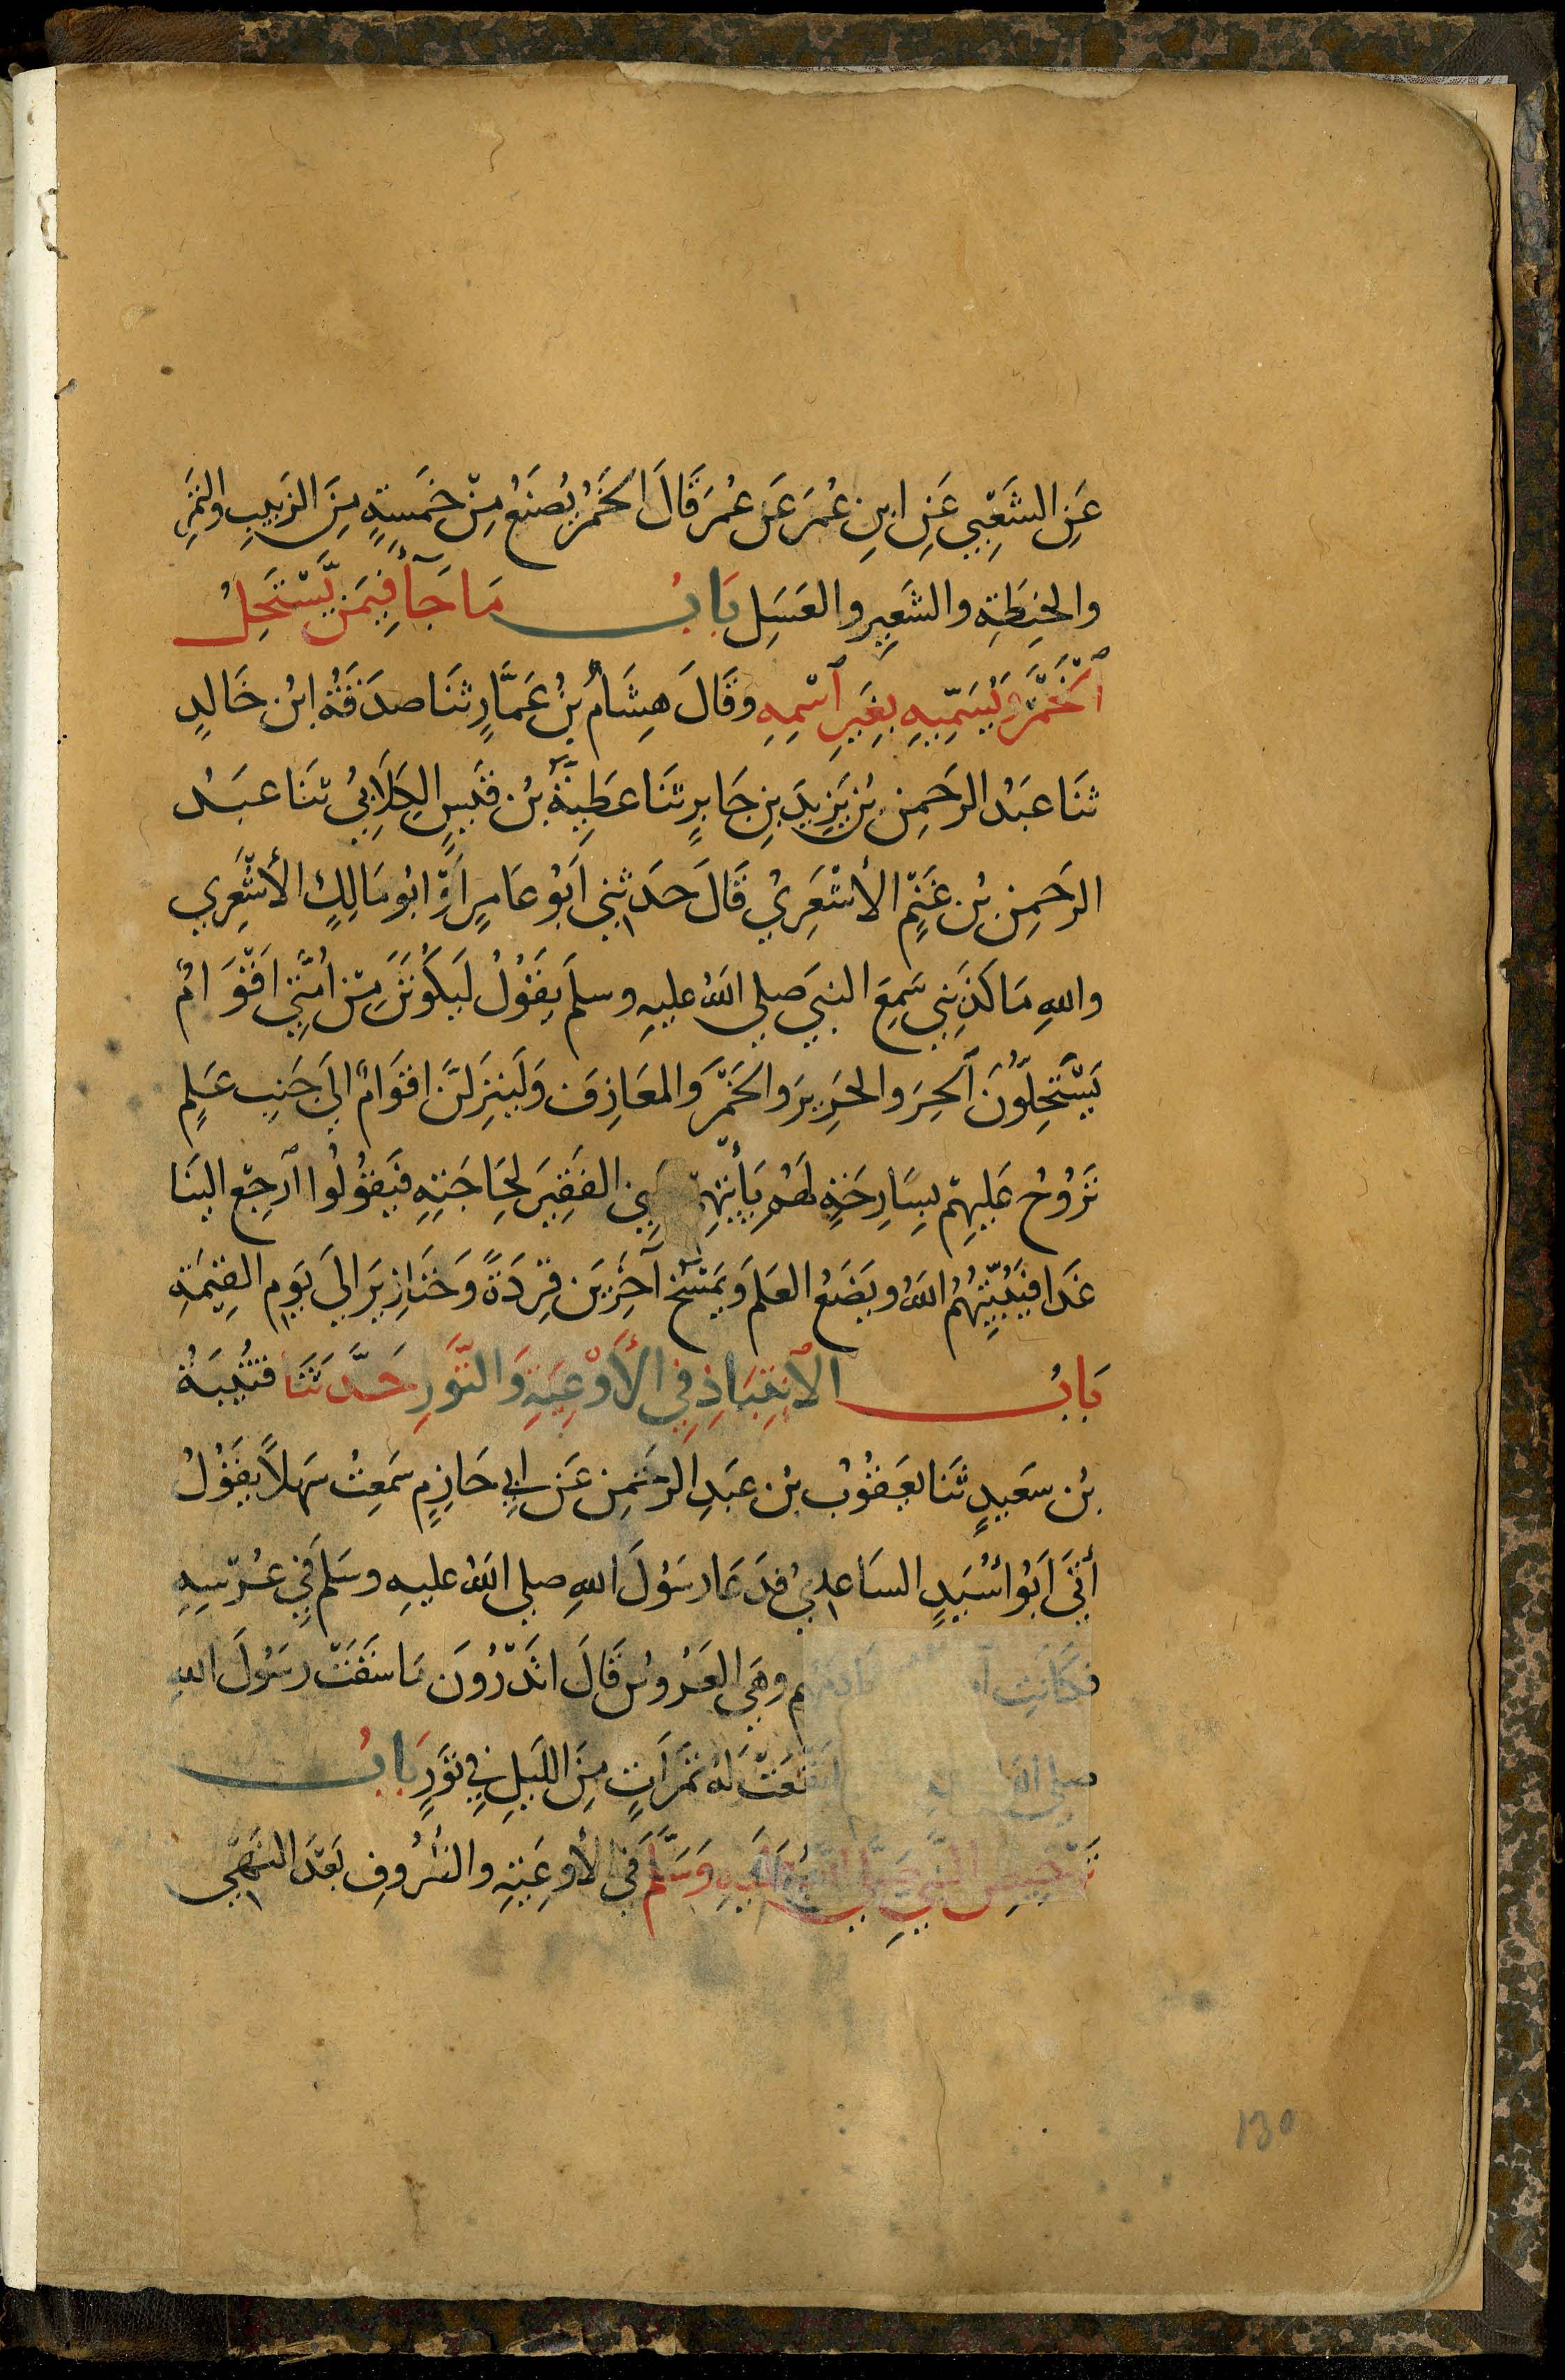 عَنِ الشَعْبِي عَنِ ابنِ عُمَرَ عَن عُمَرَ قَالَ الخَمْرُ يُصْنَعُ مِنْ خَمسَةٍ مِنَ الزَبيبِ والتَمْرِ
والحِنطَةِ والشَعِيرِ والعَسَلِ بَابُ مَا جَآءَ فِيمَن يَّسْتَحِلُ
الْخَمْرَ وَيُسَمِّيهِ بِغَيرِ اسْمِهِ وقَالَ هِشَامُ بنُ عَمَّارٍ ثَنَا صدَقَةُ ابْن خَالدٍ
ثنَا عَبْدُ الرحَمنِ بْن يَزِيدَ بنِ جَابِرٍ ثنَا عَطِيَّةُ بْن قَيسٍ الكِلَابِيُ ثنَا عبَد
الرحَمنِ بْن غَنْمٍ الأشْعَرِيُ قَالَ حدَثنِي اَبُو عَامِرٍ اَوْ ابُو مَالِكٍ الأشْعَرِي
واللهِ مَا كَذَبنِي سَمِعَ النبيَ صلي اللهُ عليهِ وسلمَ يقَوُلُ لَيكَوُنَنَ مِنْ اُمَتِي اقْوَامٌ
يَسْتَحِلّوُنَ الحِرَ والحَرِيرَ والخَمْرَ وَالمَعَازِفَ وَلَينزِلَنَ اقوَامٌ الَي جَنبِ عَلمٍ
تَرُوحُ عَلَيهِمْ بِسَارِحَةٍ لَهُم يَأْتِيهِمْ الفَقِيرَ لِحَاجَتِهِ فيَقوُلُوا ارجِعْ الينَا
غَدًا فيُبَيِّتُهُمُ اللهُ ويَضَعُ العَلمَ وَيَمْسَخُ آخَرِينَ قِرَدَةً وَخَنَازِيرَ اليَ يَومِ القِيمَةِ
بَابُ الاِنْتِبَاذِ فِي الأَوْعِيَةِ وَالتَّوْرِ حَدَّثَنَا قتُيبَةُ
بْن سَعيدٍ ثنَا يعَقُوُب بْن عَبدِ الرحَمنِ عَن ابي حَازِمٍ سَمعِتُ سَهلاً يقَوُلُ
أَتَي اَبُو أسُيَدٍ السَاعدِيُ فدَعَا رسَوُلَ اللهِ صلي اللهُ عليهِ وسَلمَ فِي عُرْسِهِ
فكَانَتِ خَادِمَهُم وهِيَ العَرُوسُ قَالَ اتَدْرُونَ مَا سَقَتْ رسَوُلَ اللهِ
صلي اللهُ انقَعَتْ لَهُ تَمْرَاتٍ مِنَ اللَيلِ فِي تَورٍ بَابُ
تَرْخِيصِ النَّبِي صَلَّي اللهُ عَلَيهِ وَسَلَّمَ فِي الأَوعِيَةِ والظُرُوفِ بَعْدَ النَهْي
130